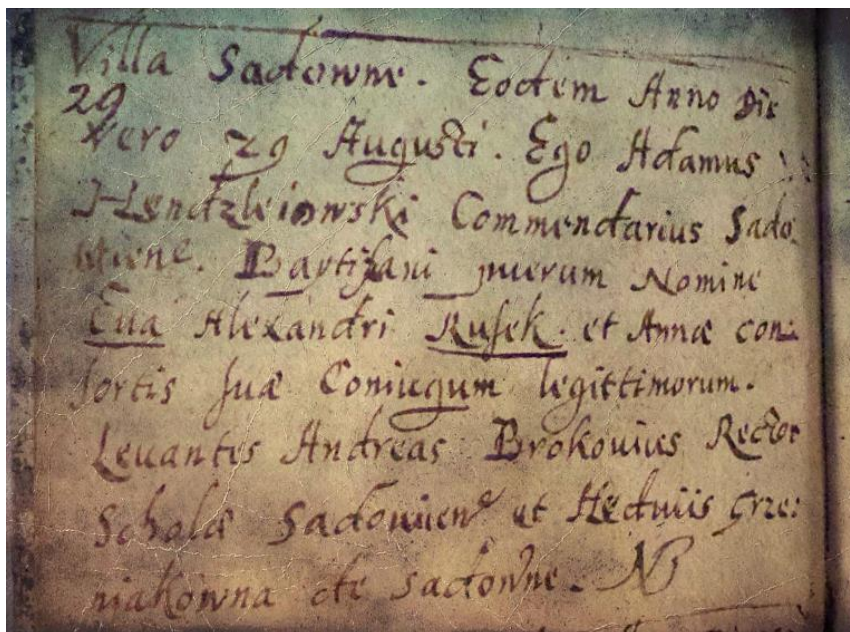 Villa Sadowne. Eodem Anno Die
29
vero 29 Augusti. Ego Adamus
Commendarius Sado:
wiene. Baptizani puerum Nomine
Eua Alexandri Rusek. et Annæ con:
sortis suæ Coniugum legittimorum.
Leuantes Andreas Brokouius Rector
Scholæ Sadouien et Heduiis Grze:
niakowna de Sadowne. NB